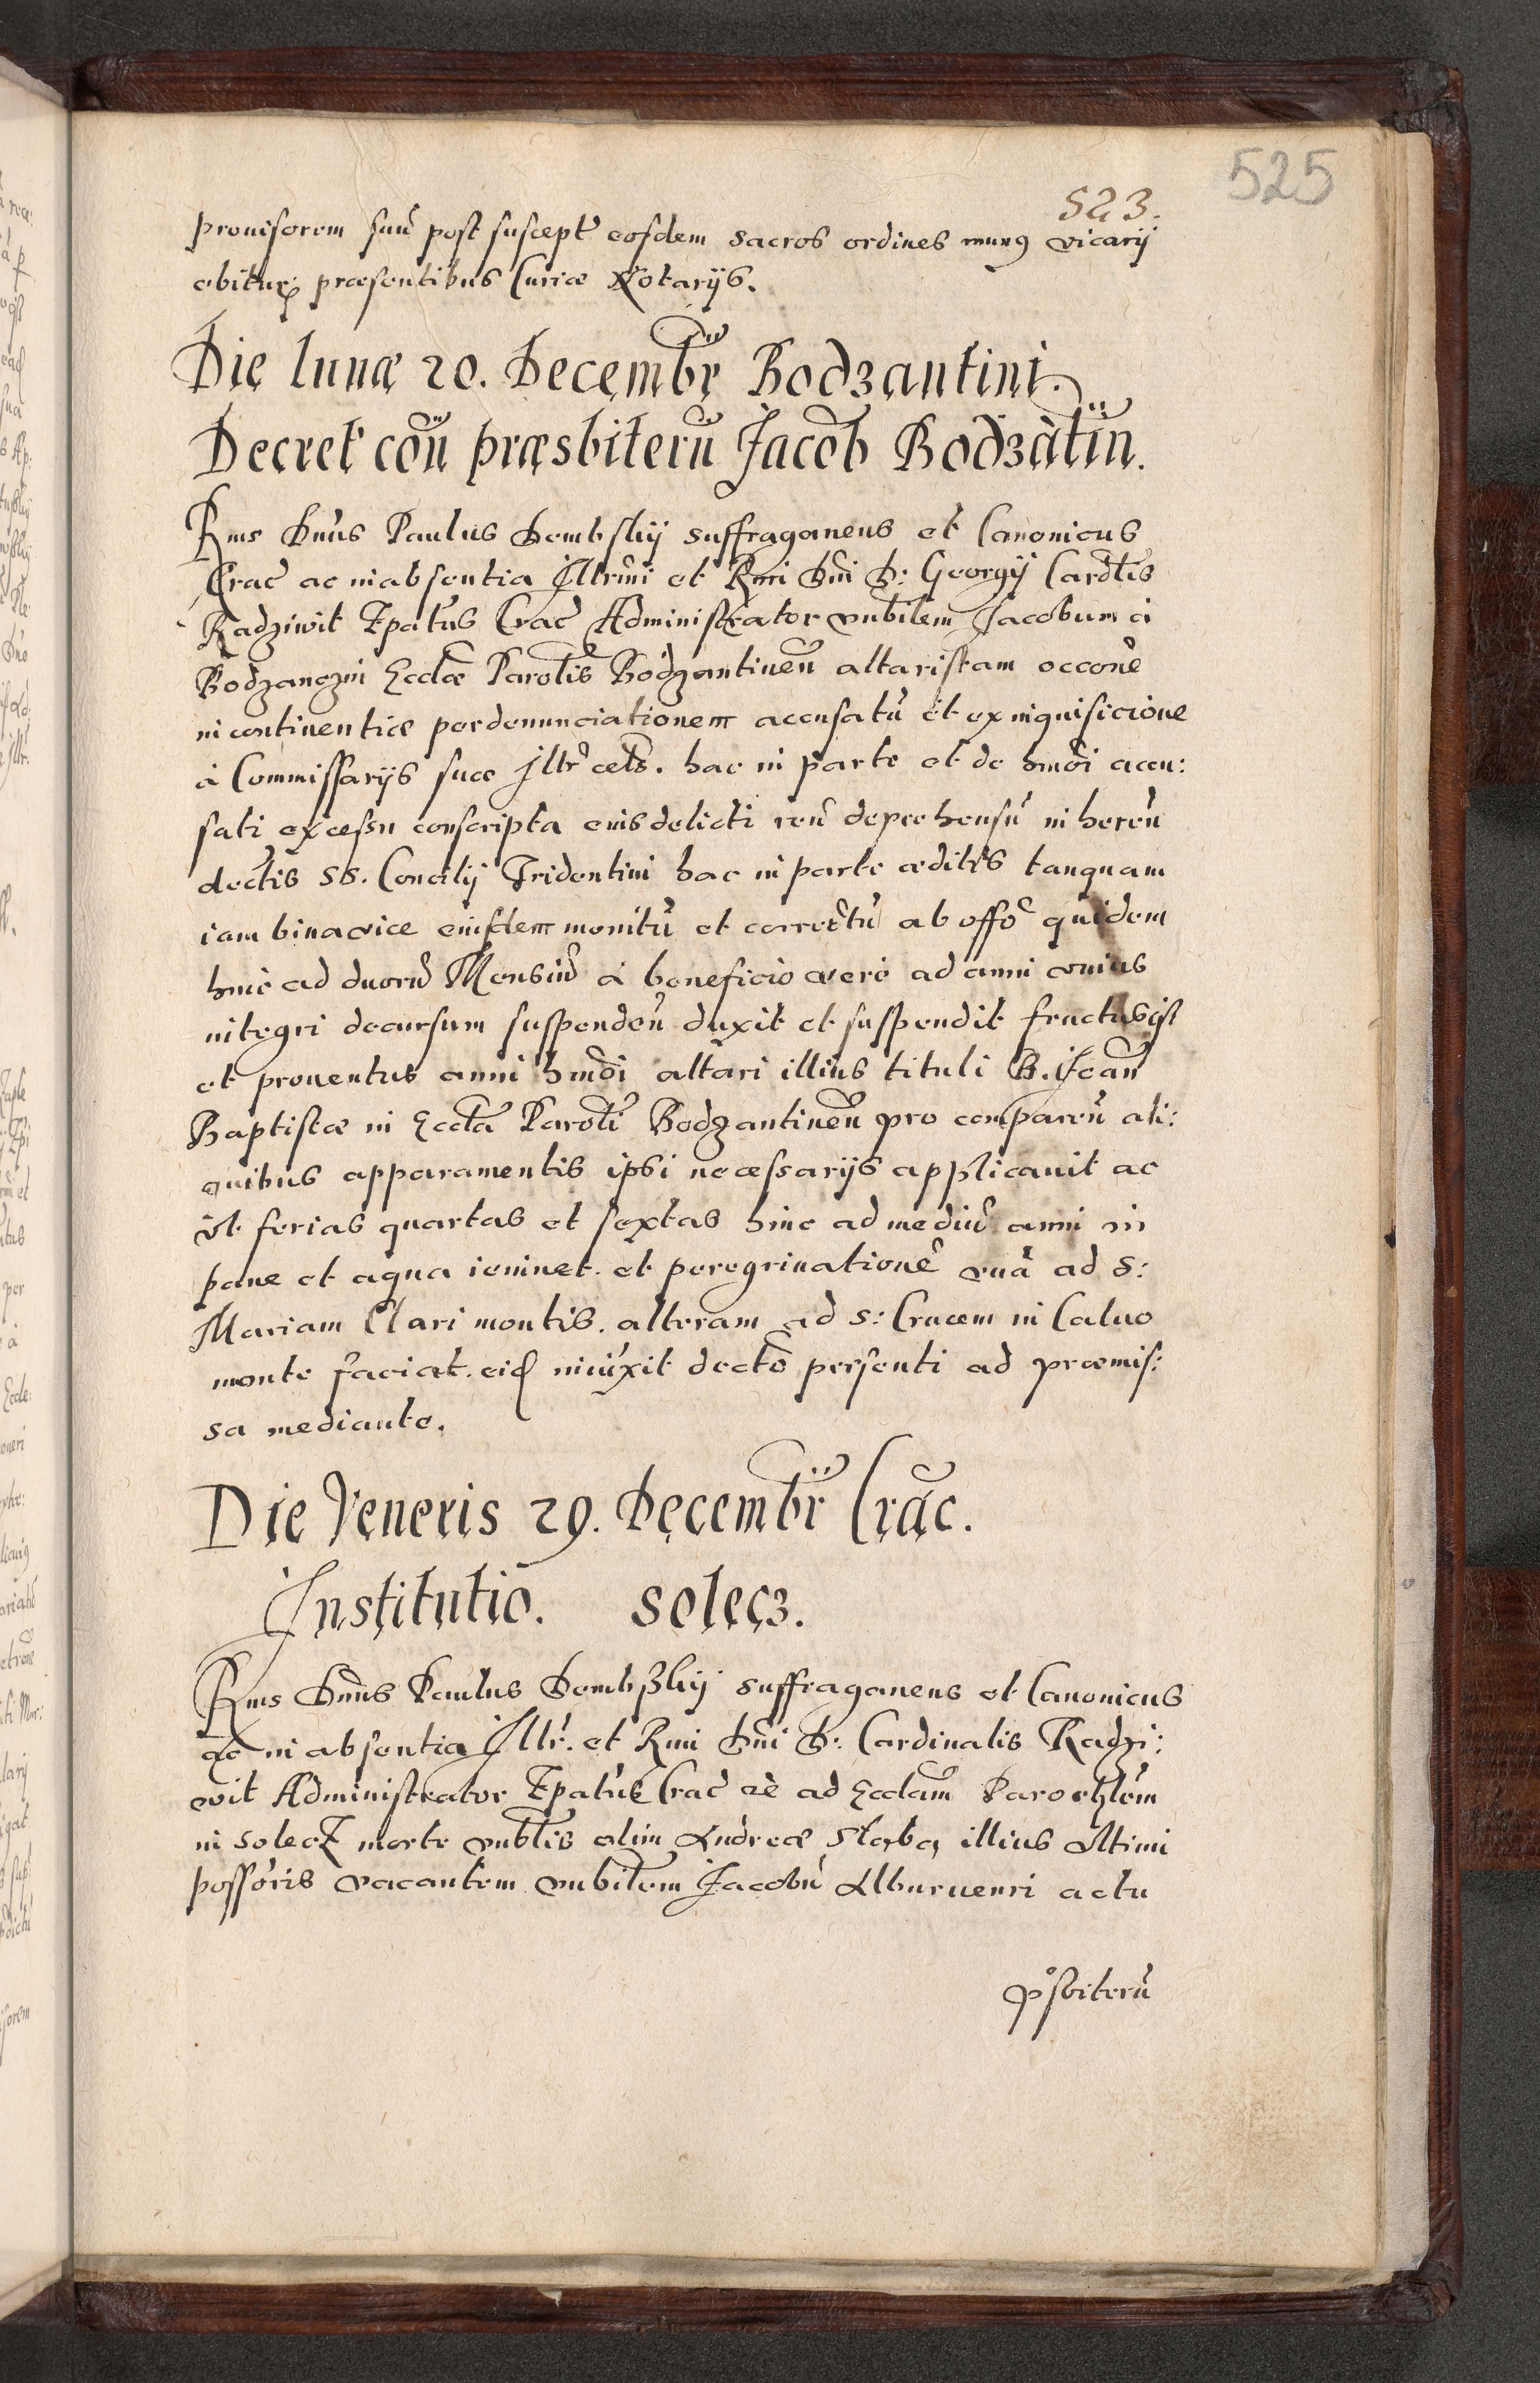 525
523.
prouisorem suũ post suscept eosdem sacros ordines mung vicarij
obitur, præsentibus Curiæ Notarijs.
Die lunæ 20. Decembr̃ Bodzantini.
Decret coñ præsbiterũ Jacob Bodzãtiñ.
Rms Dnus Paulus Dembskij suffraganeus et Canonicus
Crac̃ ac in absentia Illrmi et Rmi Dni D: Georgij Cardtis
Radziwił Epatus Crac̃ Administrator vnbilem Jacobum à
Bodzanczin Ecclæ Parotis Bodzantineñ altaristam occone
in continentiæ per denunciationem accusatũ et ex inquisicione
à Commissarijs suæ Illr̃ cels. hac in parte et de hmõi accu:
sati excessu conscripta euis delicti reũ deprehensũ in hereñ
dectis SS. Concilij Tridentini hac in parte æditis tanquam
iam bina vice eiusdem monitũ et corrertũ ab offo quidem
hinc ad duorũ Mensiũ à beneficio vero ad anni vnius
integri decursum suspendeñ duxit et suspendit fructusqȝ
et prouentus anni hmõi altari illius tituli B. Joañ
Baptistæ in Eccla Paroti Bodzantineñ pro compareñ ali:
quibus apparamentis ipsi necessarijs applicauit ac
vt ferias quartas et sextas hinc ad mediũ anni in
pane et aqua ieiunet. et peregrinationẽ vnã ad S:
Mariam Clari montis. alteram ad S: Crucem in Caluo
monte faciat. eid iniũxit decto persenti ad præmis:
sa mediante.
Die Veneris 29. Decembr̃ Crãc.
Institutio. Solecz.
Rms Dnus Paulus Dembskij suffraganeus et Canonicus
ac in absentia Illr̃. et Rmi Dni D: Cardinalis Radzi:
wił Administrator Epatus Crac̃ ad Ecclam Parochlem
in Solecz morte vnbtis olim Andreæ Skarba illius vltimi
possoris vacantem vnbilem Jacobũ Alburuenri actu
pͦsbiterũ